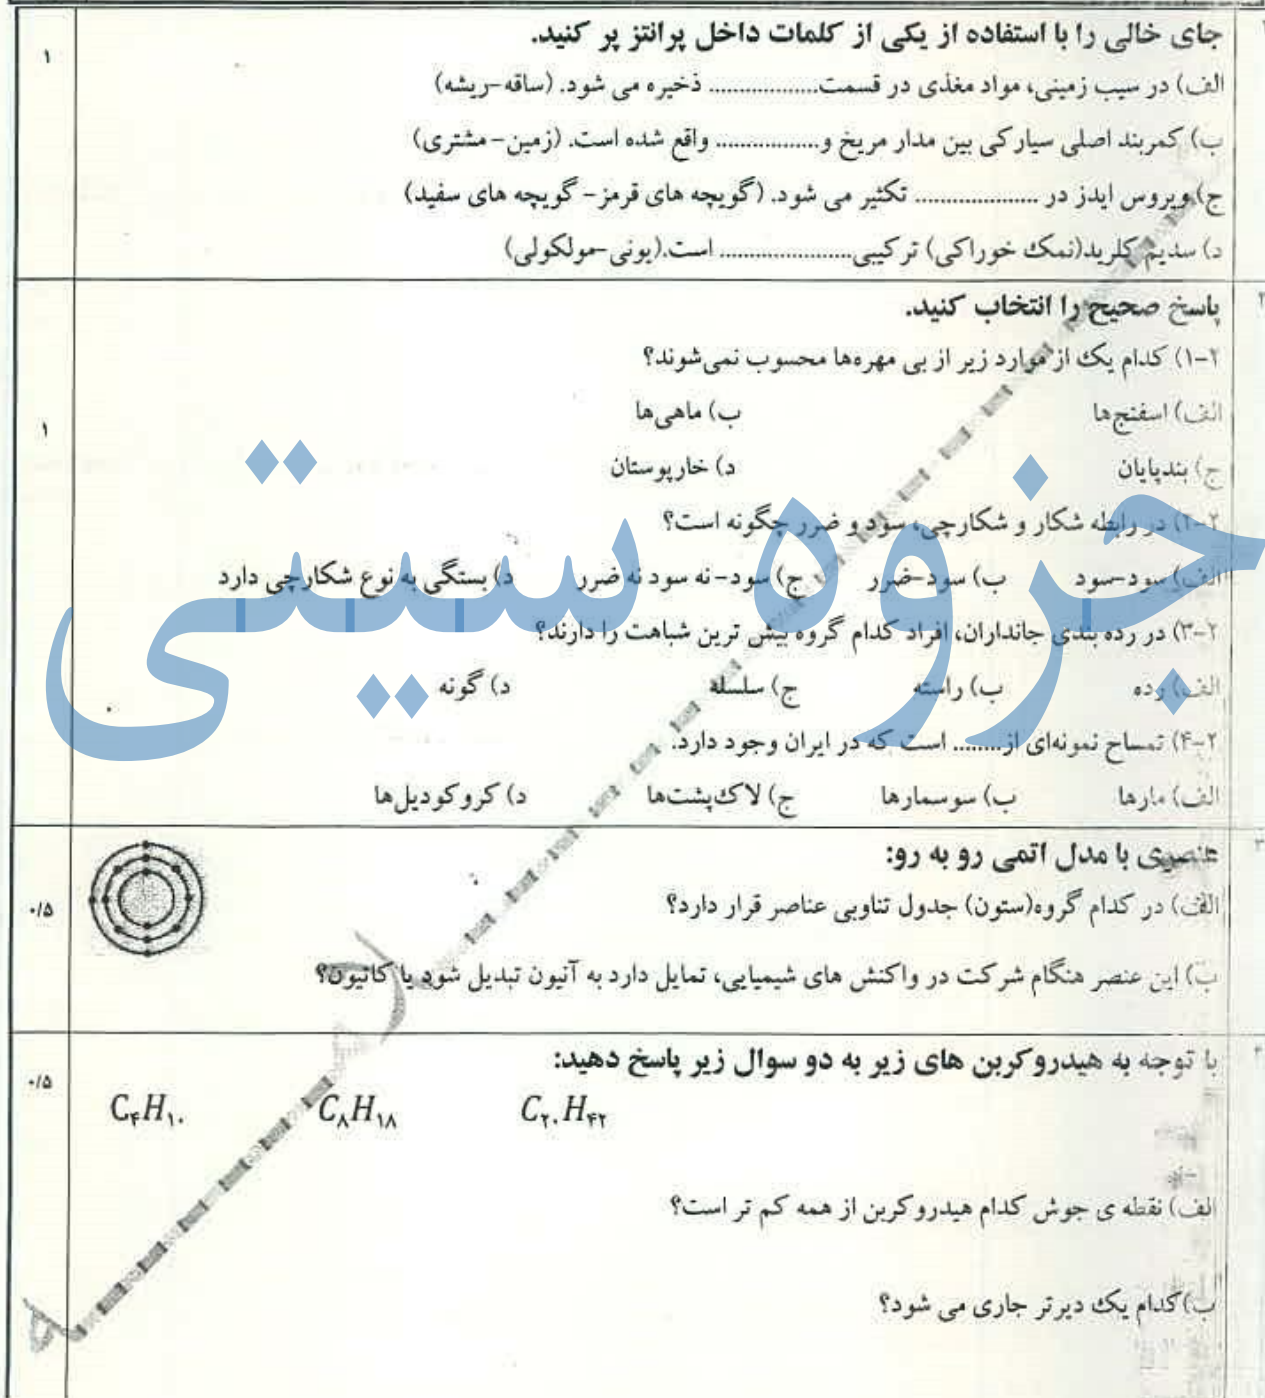 ۱
جای خالی را با استفاده از یکی از کلمات داخل پرانتز پر کنید.
الف) در سیب زمینی، مواد مغذی در قسمت.................. ذخیره می شود. (ساقه-ریشه)
ب) کمربند اصلی سیارکی بین مدار مریخ و................. واقع شده است. (زمین- مشتری)
ج) ویروس ایدز در .................... تکثیر می شود. (گویچه های قرمز- گویچه های سفید)
د) سدیم کلرید(نمک خوراکی) ترکیبی...................... است.(یونی-مولکولی)
۲
پاسخ صحیح را انتخاب کنید.
۱
۲-۱) کدام یک از موارد زیر از بی مهره‌ها محسوب نمی‌شوند؟
الف) اسفنج‌ها ب) ماهی‌ها
ج) بندپایان د) خارپوستان
۲-۲) در رابطه شکار و شکارچی، سود و ضرر چگونه است؟
الف) سود-سود ب) سود-ضرر ج) سود- نه سود نه ضرر د) بستگی به نوع شکارچی دارد
۲-۳) در رده بندی جانداران، افراد کدام گروه بیش ترین شباهت را دارند؟
الف) رده ب) راسته ج) سلسله د) گونه
۲-۴) تمساح نمونه‌ای از........ است که در ایران وجود دارد.
الف) مارها ب) سوسمارها ج) لاک‌پشت‌ها د) کروکودیل‌ها
جزوه سیتی
۳
عنصری با مدل اتمی رو به رو:
۰/۵
الف) در کدام گروه(ستون) جدول تناوبی عناصر قرار دارد؟
ب) این عنصر هنگام شرکت در واکنش های شیمیایی، تمایل دارد به آنیون تبدیل شود یا کاتیون؟
با توجه به هیدروکربن های زیر به دو سوال زیر پاسخ دهید:
۰/۵
C₄H₁₀ C₈H₁₈ C₂₀H₄₂
الف) نقطه ی جوش کدام هیدروکربن از همه کم تر است؟
ب)کدام یک دیرتر جاری می شود؟